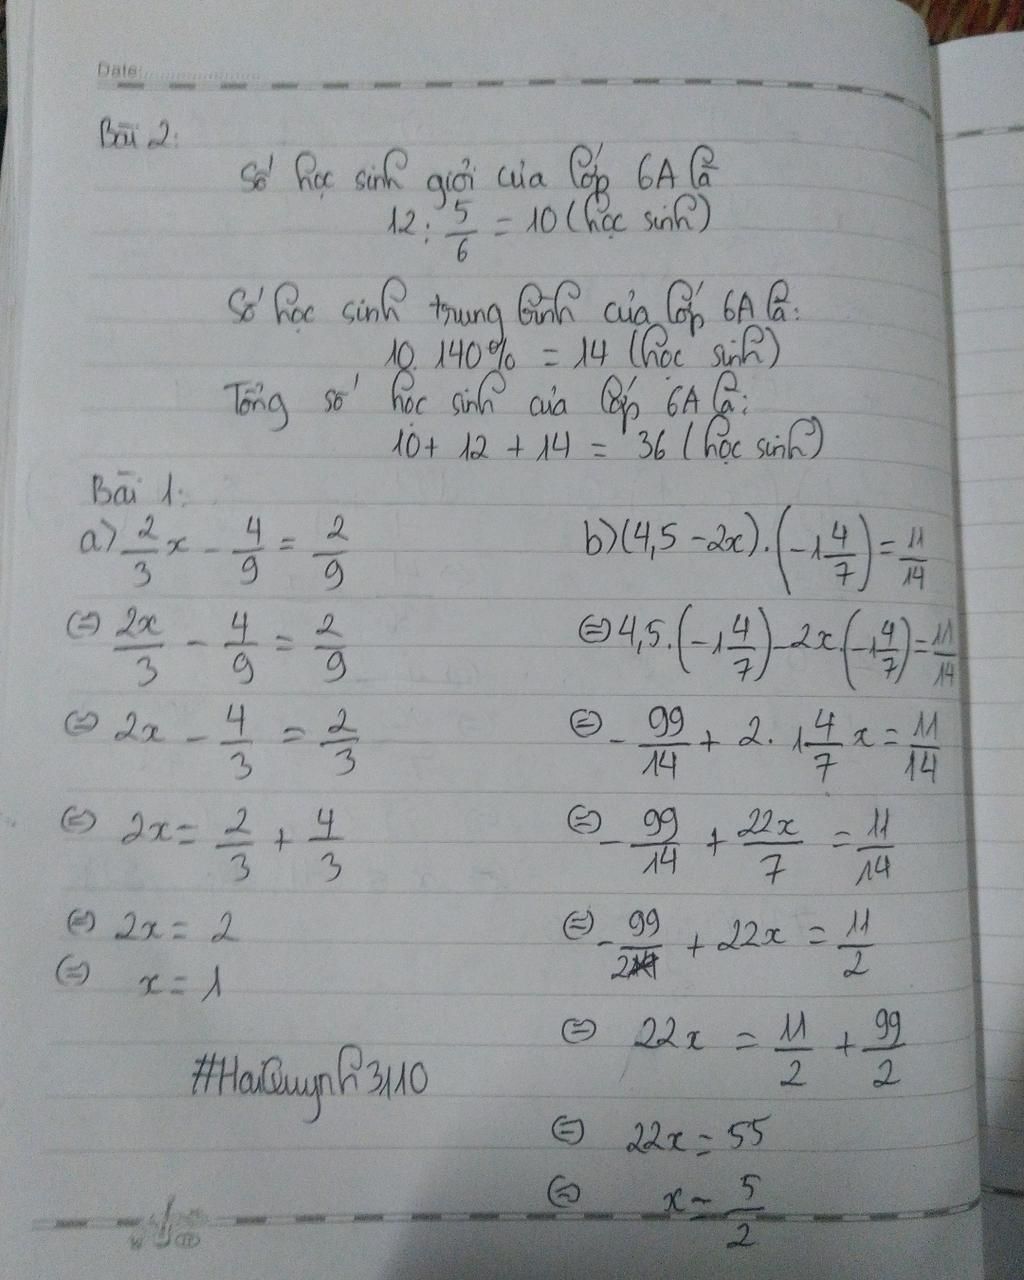 Date:
Bài 2:
Số học sinh giỏi của lớp 6A là
12 : 5/6 = 10 (học sinh)
Số học sinh trung bình của lớp 6A là:
10. 140% = 14 (học sinh)
Tổng số học sinh của lớp 6A là:
10 + 12 + 14 = 36 (học sinh)
Bài 1:
a) 2/3 x - 4/9 = 2/9
⇔ 2x/3 - 4/9 = 2/9
⇔ 2x - 4/3 = 2/3
⇔ 2x = 2/3 + 4/3
⇔ 2x = 2
⇔ x = 1
#HaiQuynh3110
b) (4,5 - 2x) . (-1 4/7) = 11/14
⇔ 4,5 . (-1 4/7) - 2x . (-1 4/7) = 11/14
⇔ - 99/14 + 2 . 1 4/7 x = 11/14
⇔ - 99/14 + 22x/7 = 11/14
⇔ - 99/2 + 22x = 11/2
⇔ 22x = 11/2 + 99/2
⇔ 22x = 55
⇔ x = 5/2